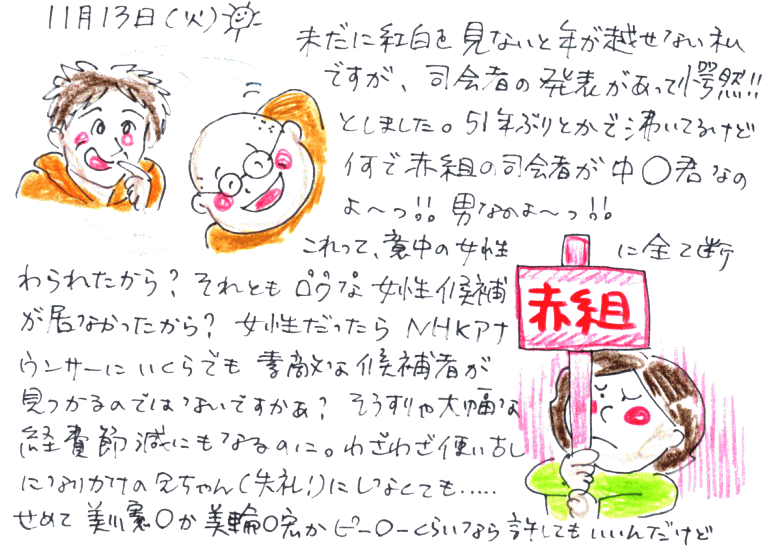 11月13日(火)
未だに紅白を見ないと年が越せない私
ですが、司会者の発表があって愕然!!
としました。51年ぶりとかで沸いてるけど
何で赤組の司会者が中〇君なの
よ〜っ!! 男なのよ〜っ!!
これって、意中の女性に全て断
わられたから? それともロクな女性候補
が居なかったから? 女性だったらNHKアナ
ウンサーにいくらでも素敵な候補者が
見つかるのではないですかぁ? そうすりゃ大幅な
経費節減にもなるのに。わざわざ使い古し
になりかけの兄ちゃん(失礼!)にしなくても.....
せめて美川憲〇か美輪〇宏かピー〇ーくらいなら許してもいいんだけど
赤組